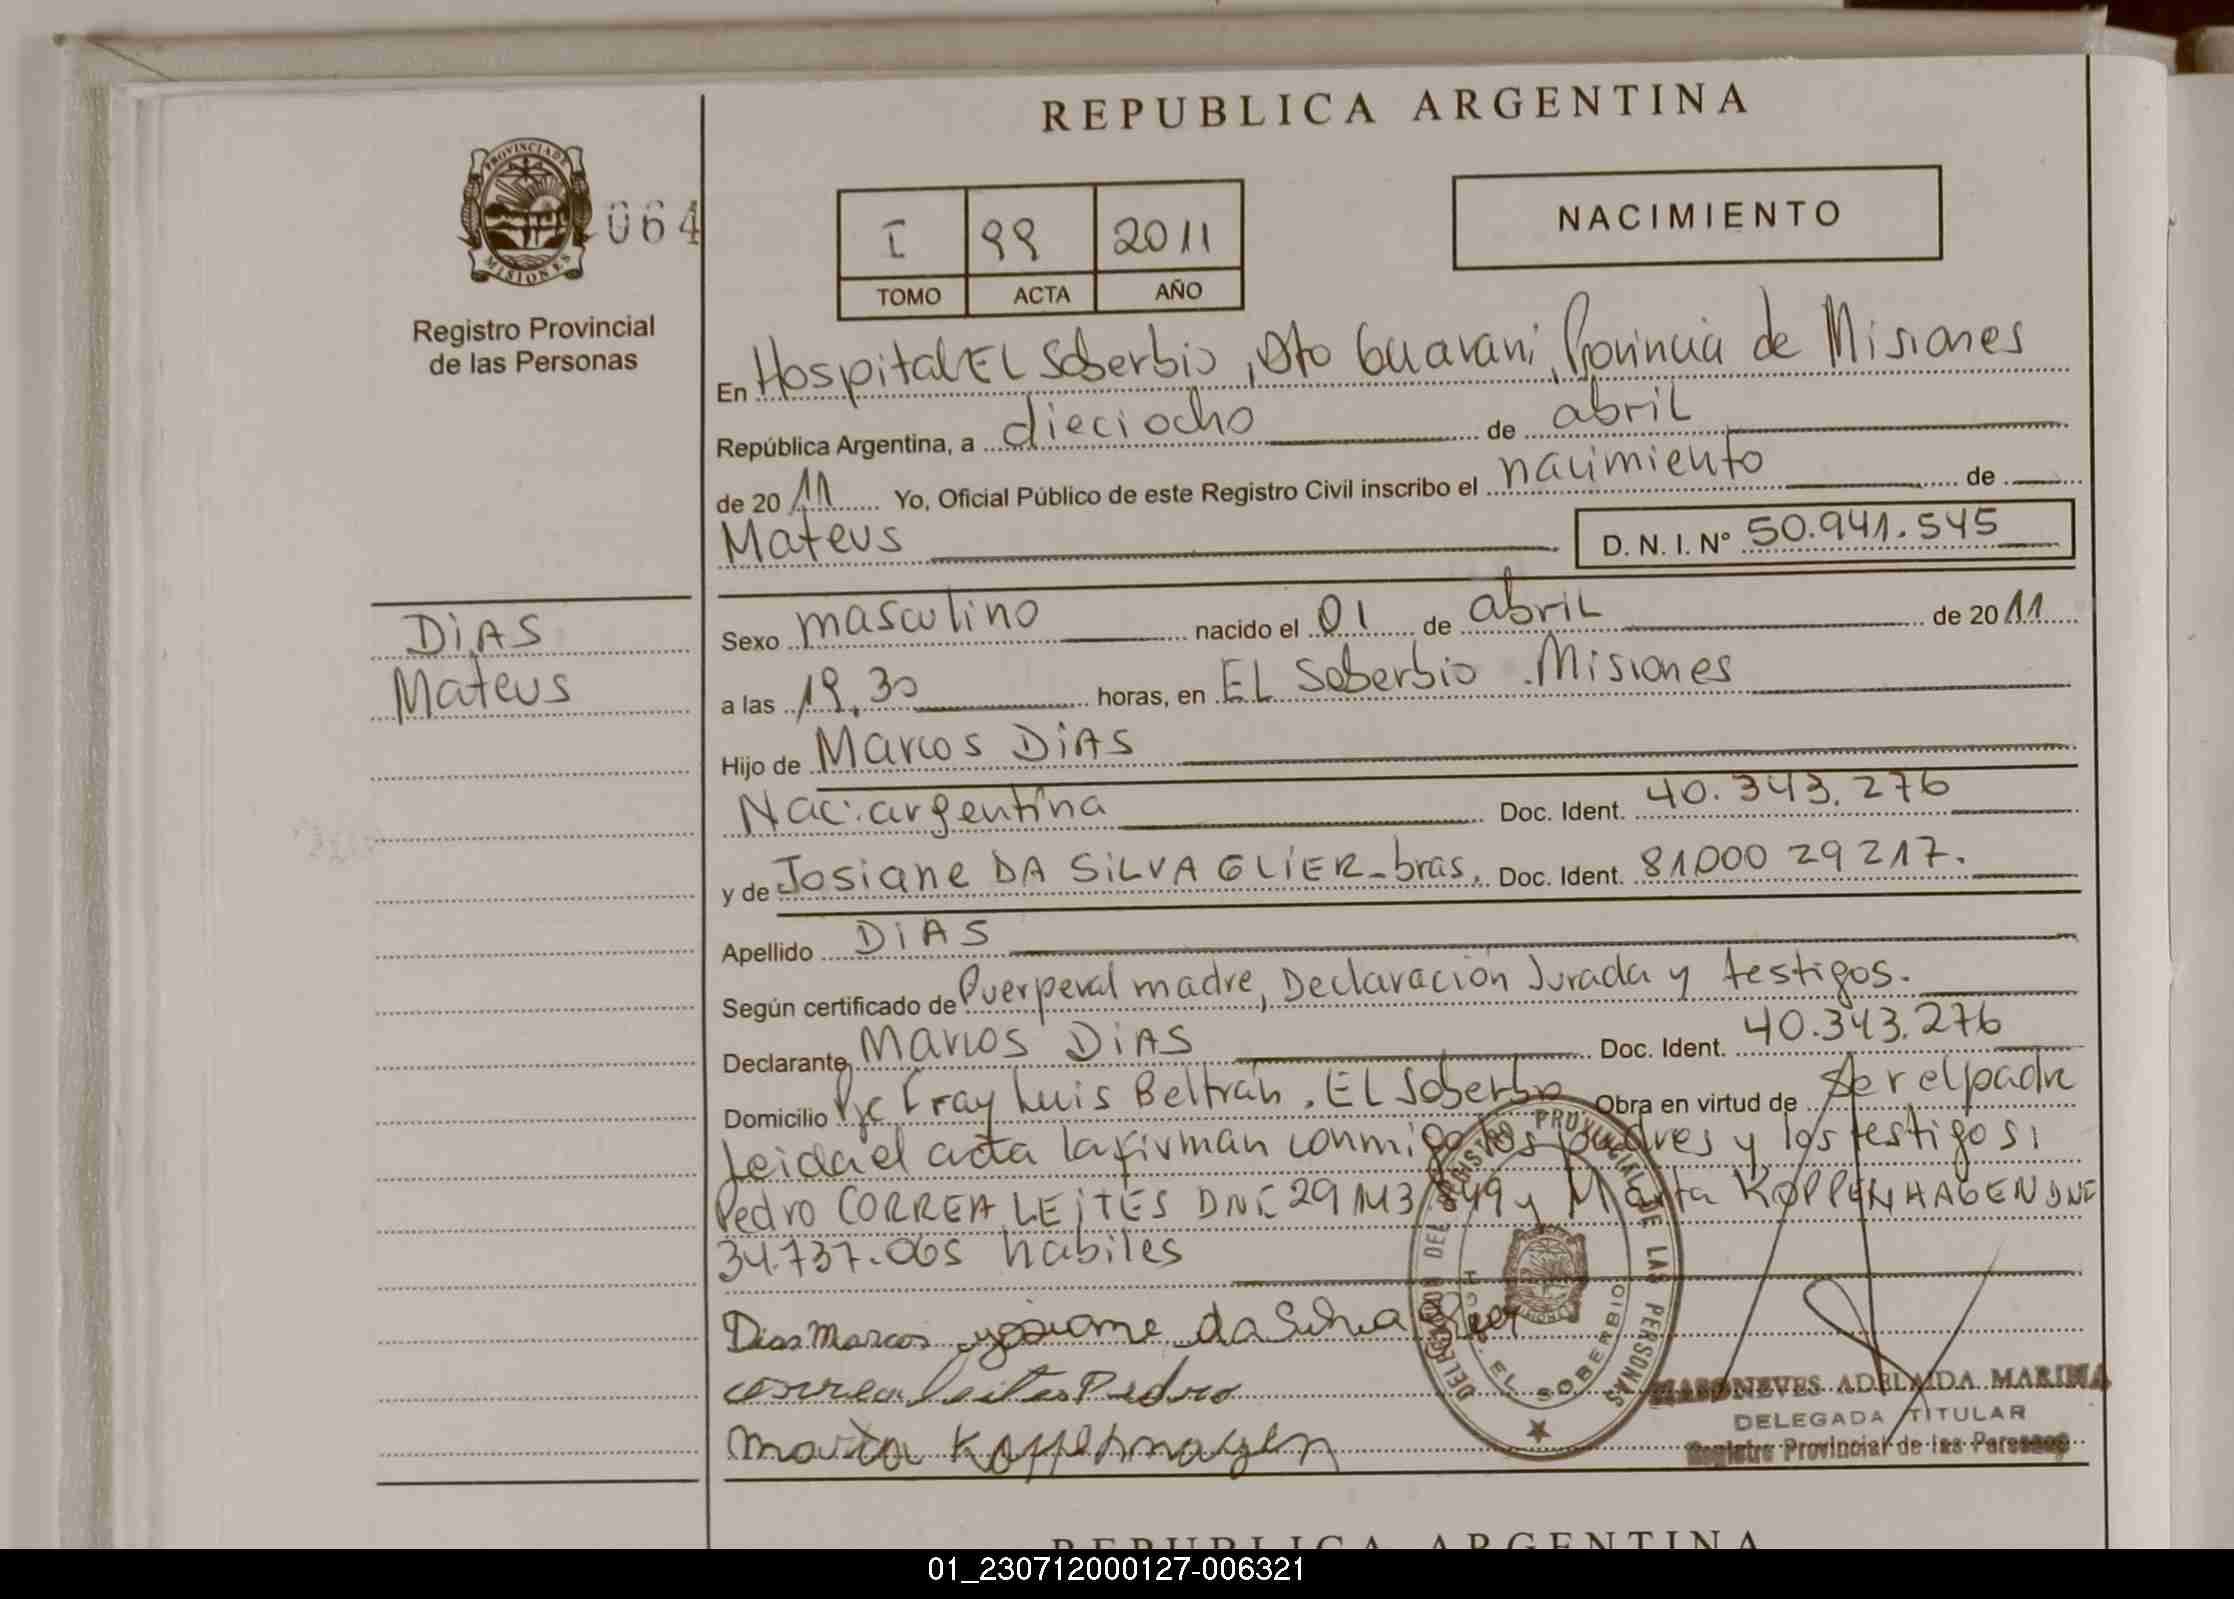 REPUBLICA ARGENTINA
PROVINCIA DE
MISIONES
064
Registro Provincial
de las Personas
I 99 2011
TOMO ACTA AÑO
NACIMIENTO
En Hospital EL Soberbio, Dto Guaraní, Provincia de Misiones
República Argentina, a dieciocho de abril
de 2011 Yo, Oficial Público de este Registro Civil inscribo el nacimiento de
Mateus D. N. I. Nº 50.941.545
DiAS
Mateus
Sexo masculino nacido el 01 de abril de 2011
a las 19,30 horas, en EL Soberbio . Misiones
Hijo de Marcos DiAS
Nac: argentina Doc. Ident. 40.343.276
y de Josiane DA SiLVA GLiER - bras, Doc. Ident. 81000 29217.
Apellido DiAS
Según certificado de Puerperal madre, Declaración Jurada y testigos.
Declarante Marcos DiAS Doc. Ident. 40.343.276
Domicilio Pje Fray Luis Beltrán, EL Soberbio Obra en virtud de ser el padre
Leida el acta la firman conmigo los padres y los testigos:
Pedro CORREA LEiTES DNI 29 113 849 y Marta KOPPENHAGEN DNI
34.737.065 habiles
Dias Marcos Josiane da Silva Glier
correa leites Pedro
Marta Koppenhagen
DELEGADO DEL REGISTRO PROVINCIAL DE LAS PERSONAS
EL SOBERBIO
NEVES ADELAIDA MARINA
DELEGADA TITULAR
Registro Provincial de las Personas
REPUBLICA ARGENTINA
01_230712000127-006321